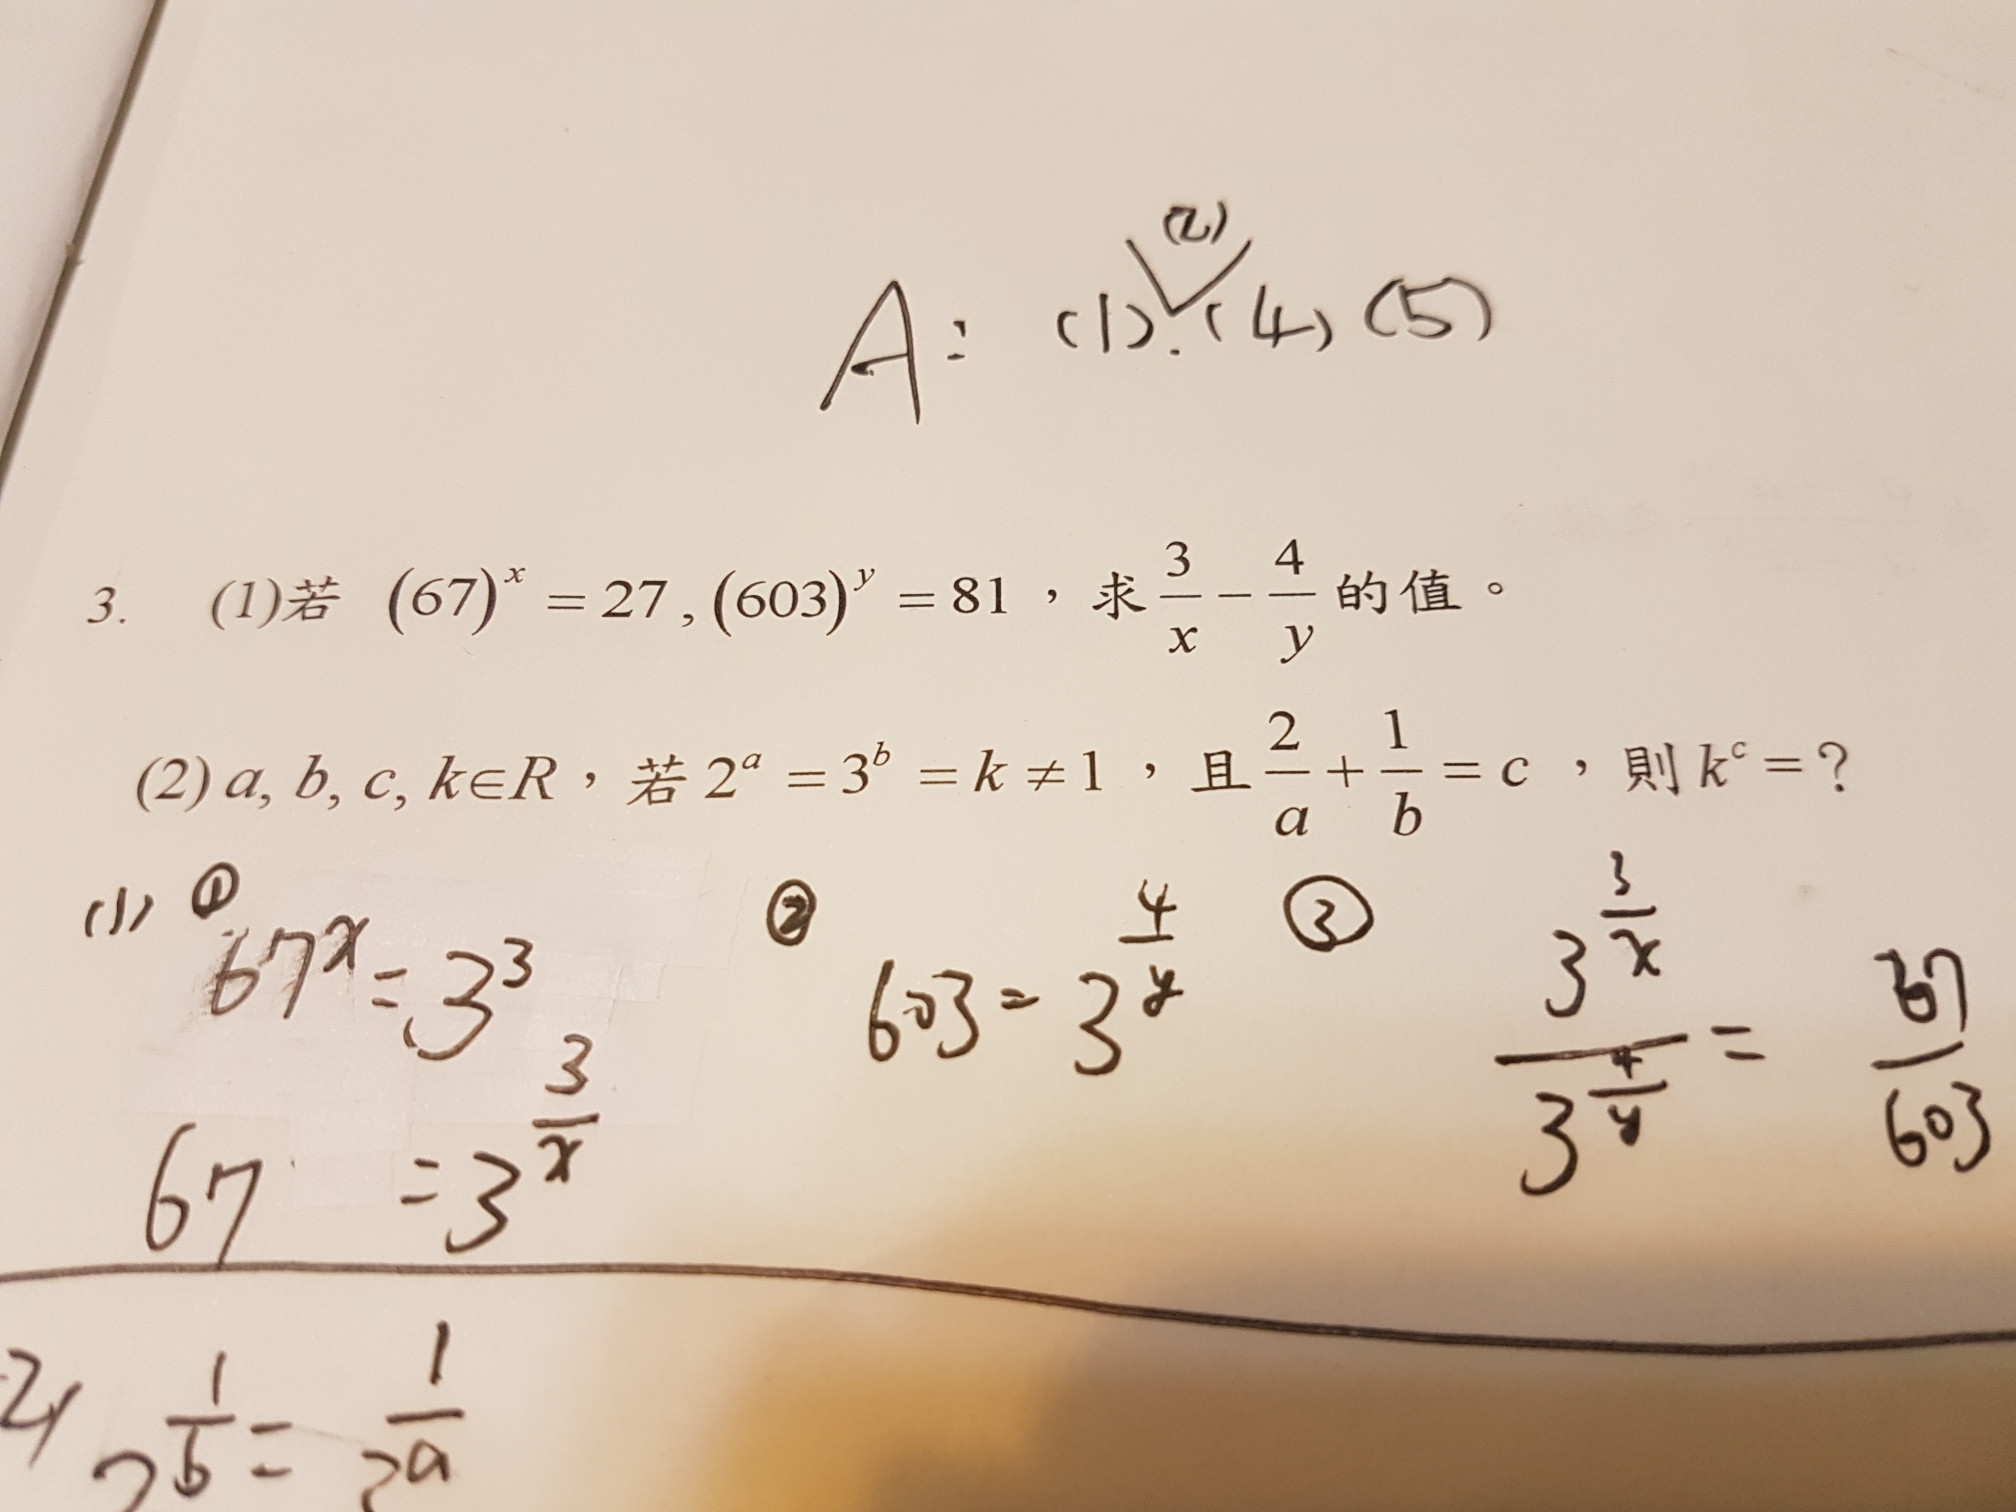 (2)
A: (1). (4) (5)
3. (1)若 (67)^x = 27, (603)^y = 81，求 3/x − 4/y 的值。
(2) a, b, c, k∈R，若 2^a = 3^b = k ≠ 1，且 2/a + 1/b = c，則 k^c = ?
(1) ① 67^x = 3^3
67 = 3^(3/x)
② 603 = 3^(4/y)
③ 3^(3/x) / 3^(4/y) = 67/603
2) 2^(1/b) = 3^(1/a)